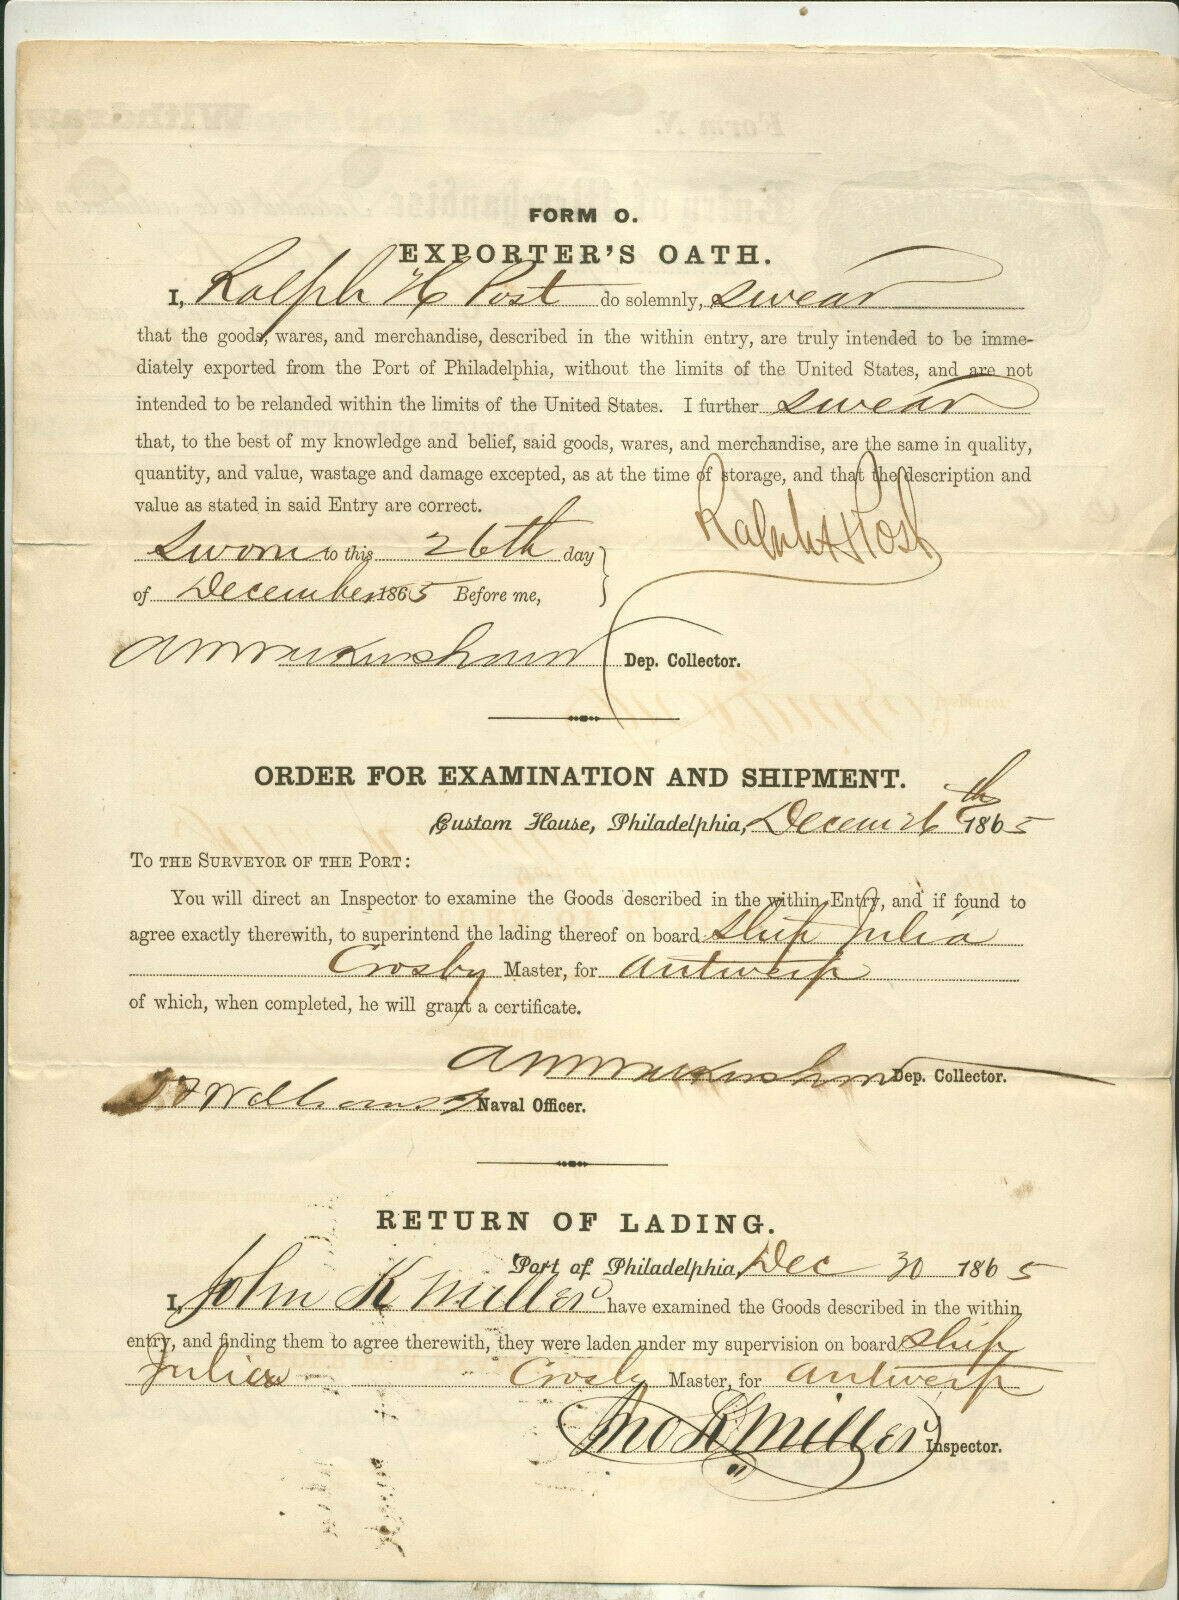 FORM O.
EXPORTER'S OATH.
I, Ralph H Post do solemnly, swear
that the goods, wares, and merchandise, described in the within entry, are truly intended to be imme-
diately exported from the Port of Philadelphia, without the limits of the United States, and are not
intended to be relanded within the limits of the United States. I further swear
that, to the best of my knowledge and belief, said goods, wares, and merchandise, are the same in quality,
quantity, and value, wastage and damage excepted, as at the time of storage, and that the description and
value as stated in said Entry are correct.
Ralph H Post
Sworn to this 26th day
of December 1865 Before me,
Dep. Collector.
ORDER FOR EXAMINATION AND SHIPMENT.
Custom House, Philadelphia, Decem 26th 1865
TO THE SURVEYOR OF THE PORT:
You will direct an Inspector to examine the Goods described in the within Entry, and if found to
agree exactly therewith, to superintend the lading thereof on board ship Julia
Crosby Master, for Antwerp
of which, when completed, he will grant a certificate.
Dep. Collector.
Williams Naval Officer.
RETURN OF LADING.
Port of Philadelphia, Dec 30 1865
I, John K Miller have examined the Goods described in the within
entry, and finding them to agree therewith, they were laden under my supervision on board ship
Julia Crosby Master, for Antwerp
Jno K Miller Inspector.